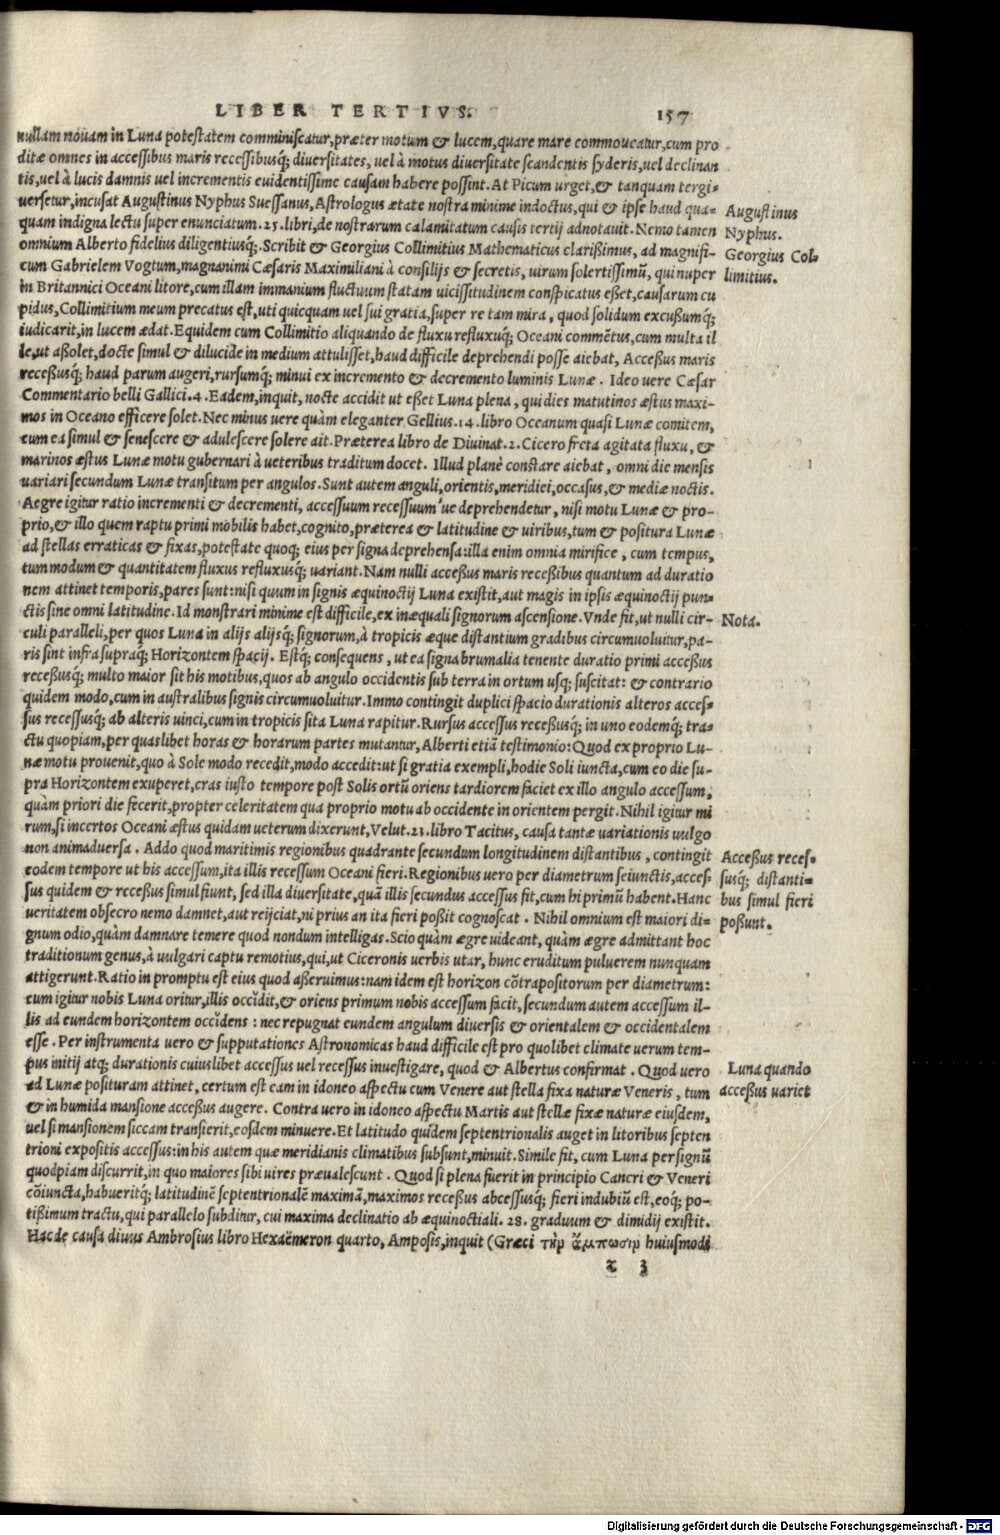 LIBER TERTIVS. 157
nullam nouam in Luna potestatem comminiscatur, præter motum & lucem, quare mare commoueatur, cum pro
ditæ omnes in accessibus maris recessibusq́; diuersitates, uel à motus diuersitate scandentis syderis, uel declinan
tis, uel à lucis damnis uel incrementis euidentissime causam habere possint. At Picum urget, & tanquam tergi-
uersetur, incusat Augustinus Nyphus Suessanus, Astrologus ætate nostra minime indoctus, qui & ipse haud qua-
quam indigna lectu super enunciatum .25. libri, de nostrarum calamitatum causis tertij adnotauit. Nemo tamen
omnium Alberto fidelius diligentiusq́;. Scribit & Georgius Collimitius Mathematicus clarißimus, ad magnifi-
cum Gabrielem Vogtum, magnanimi Cæsaris Maximiliani à consilijs & secretis, uirum solertissimū, qui nuper
in Britannici Oceani litore, cum illam immanium fluctuum statam uicissitudinem conspicatus eßet, causarum cu
pidus, Collimitium meum precatus est, uti quicquam uel sui gratia, super re tam mira, quod solidum excußumq́;
iudicarit, in lucem ædat. Equidem cum Collimitio aliquando de fluxu refluxuq́; Oceani commētus, cum multa il
le, ut aßolet, docte simul & dilucide in medium attulisset, haud difficile deprehendi posse aiebat, Acceßus maris
receßusq́; haud parum augeri, rursumq́; minui ex incremento & decremento luminis Lunæ. Ideo uere Cæsar
Commentario belli Gallici .4. Eadem, inquit, nocte accidit ut eßet Luna plena, qui dies matutinos æstus maxi-
mos in Oceano efficere solet. Nec minus uere quàm eleganter Gellius .14. libro Oceanum quasi Lunæ comitem,
cum ea simul & senescere & adulescere solere ait. Præterea libro de Diuinat. 2. Cicero freta agitata fluxu, &
marinos æstus Lunæ motu gubernari à ueteribus traditum docet. Illud planè constare aiebat, omni die mensis
uariari secundum Lunæ transitum per angulos. Sunt autem anguli, orientis, meridiei, occasus, & mediæ noctis.
Aegre igitur ratio incrementi & decrementi, accessuum recessuum´ue deprehendetur, nisi motu Lunæ & pro-
prio, & illo quem raptu primi mobilis habet, cognito, præterea & latitudine & uiribus, tum & positura Lunæ
ad stellas erraticas & fixas, potestate quoq; eius per signa deprehensa: illa enim omnia mirifice, cum tempus,
tum modum & quantitatem fluxus refluxusq́; uariant. Nam nulli acceßus maris receßibus quantum ad duratio
nem attinet temporis, pares sunt: nisi quum in signis æquinoctij Luna existit, aut magis in ipsis æquinoctij pun-
ctis sine omni latitudine. Id monstrari minime est difficile, ex inæquali signorum ascensione. Vnde fit, ut nulli cir-
culi paralleli, per quos Luna in alijs alijsq́; signorum, à tropicis æque distantium gradibus circumuoluitur, pa-
ris sint infra supraq́; Horizontem spacij. Estq́; consequens, ut ea signa brumalia tenente duratio primi acceßus
receßusq́; multo maior sit his motibus, quos ab angulo occidentis sub terra in ortum usq; suscitat: & contrario
quidem modo, cum in australibus signis circumuoluitur. Immo contingit duplici spacio durationis alteros acces-
sus recessusq́; ab alteris uinci, cum in tropicis sita Luna rapitur. Rursus accessus receßusq́; in uno eodemq́; tra-
ctu quopiam, per quaslibet horas & horarum partes mutantur, Alberti etiā testimonio: Quod ex proprio Lu-
næ motu prouenit, quo à Sole modo recedit, modo accedit: ut si gratia exempli, hodie Soli iuncta, cum eo die su-
pra Horizontem exuperet, cras iusto tempore post Solis ortū oriens tardiorem faciet ex illo angulo accessum,
quàm priori die fecerit, propter celeritatem qua proprio motu ab occidente in orientem pergit. Nihil igitur mi
rum, si incertos Oceani æstus quidam ueterum dixerunt, Velut .23. libro Tacitus, causa tantæ uariationis uulgo
non animaduersa. Addo quod maritimis regionibus quadrante secundum longitudinem distantibus, contingit
eodem tempore ut his accessum, ita illis recessum Oceani fieri. Regionibus uero per diametrum seiunctis, acces-
sus quidem & receßus simul fiunt, sed illa diuersitate, quā illis secundus accessus fit, cum hi primū habent. Hanc
ueritatem obsecro nemo damnet, aut reijciat, ni prius an ita fieri poßit cognoscat. Nihil omnium est maiori di-
gnum odio, quàm damnare temere quod nondum intelligas. Scio quàm ægre uideant, quàm ægre admittant hoc
traditionum genus, à uulgari captu remotius, qui, ut Ciceronis uerbis utar, hunc eruditum puluerem nunquam
attigerunt. Ratio in promptu est eius quod aßeruimus: nam idem est horizon cōtrapositorum per diametrum:
cum igitur nobis Luna oritur, illis occidit, & oriens primum nobis accessum facit, secundum autem accessum il-
lis ad eundem horizontem occidens: nec repugnat eundem angulum diuersis & orientalem & occidentalem
esse. Per instrumenta uero & supputationes Astronomicas haud difficile est pro quolibet climate uerum tem-
pus initij atq; durationis cuiuslibet accessus uel recessus inuestigare, quod & Albertus confirmat. Quod uero
ad Lunæ posituram attinet, certum est eam in idoneo aspectu cum Venere aut stella fixa naturæ Veneris, tum
& in humida mansione accessus augere. Contra uero in idoneo aspectu Martis aut stellæ fixæ naturæ eiusdem,
uel si mansionem siccam transierit, eosdem minuere. Et latitudo quidem septentrionalis auget in litoribus septen
trioni expositis accessus: in his autem quæ meridianis climatibus subsunt, minuit. Simile fit, cum Luna per signū
quodpiam discurrit, in quo maiores sibi uires præualescunt. Quod si plena fuerit in principio Cancri & Veneri
cōiuncta, habueritq́; latitudinē septentrionalē maximā, maximos receßus abcessusq́; fieri indubiū est, eoq́; po-
tißimum tractu, qui parallelo subditur, cui maxima declinatio ab æquinoctiali .28. graduum & dimidij existit.
Hac de causa diuus Ambrosius libro Hexaëmeron quarto, Amposis, inquit (Græci τὴν ἄμπωσιν huiusmodi
z 3
Augustinus
Nyphus.
Georgius Col-
limitius.
Nota.
Acceßus reces-
susq́; distanti-
bus simul fieri
poßunt.
Luna quando
acceßus variet
Digitalisierung gefördert durch die Deutsche Forschungsgemeinschaft - DFG